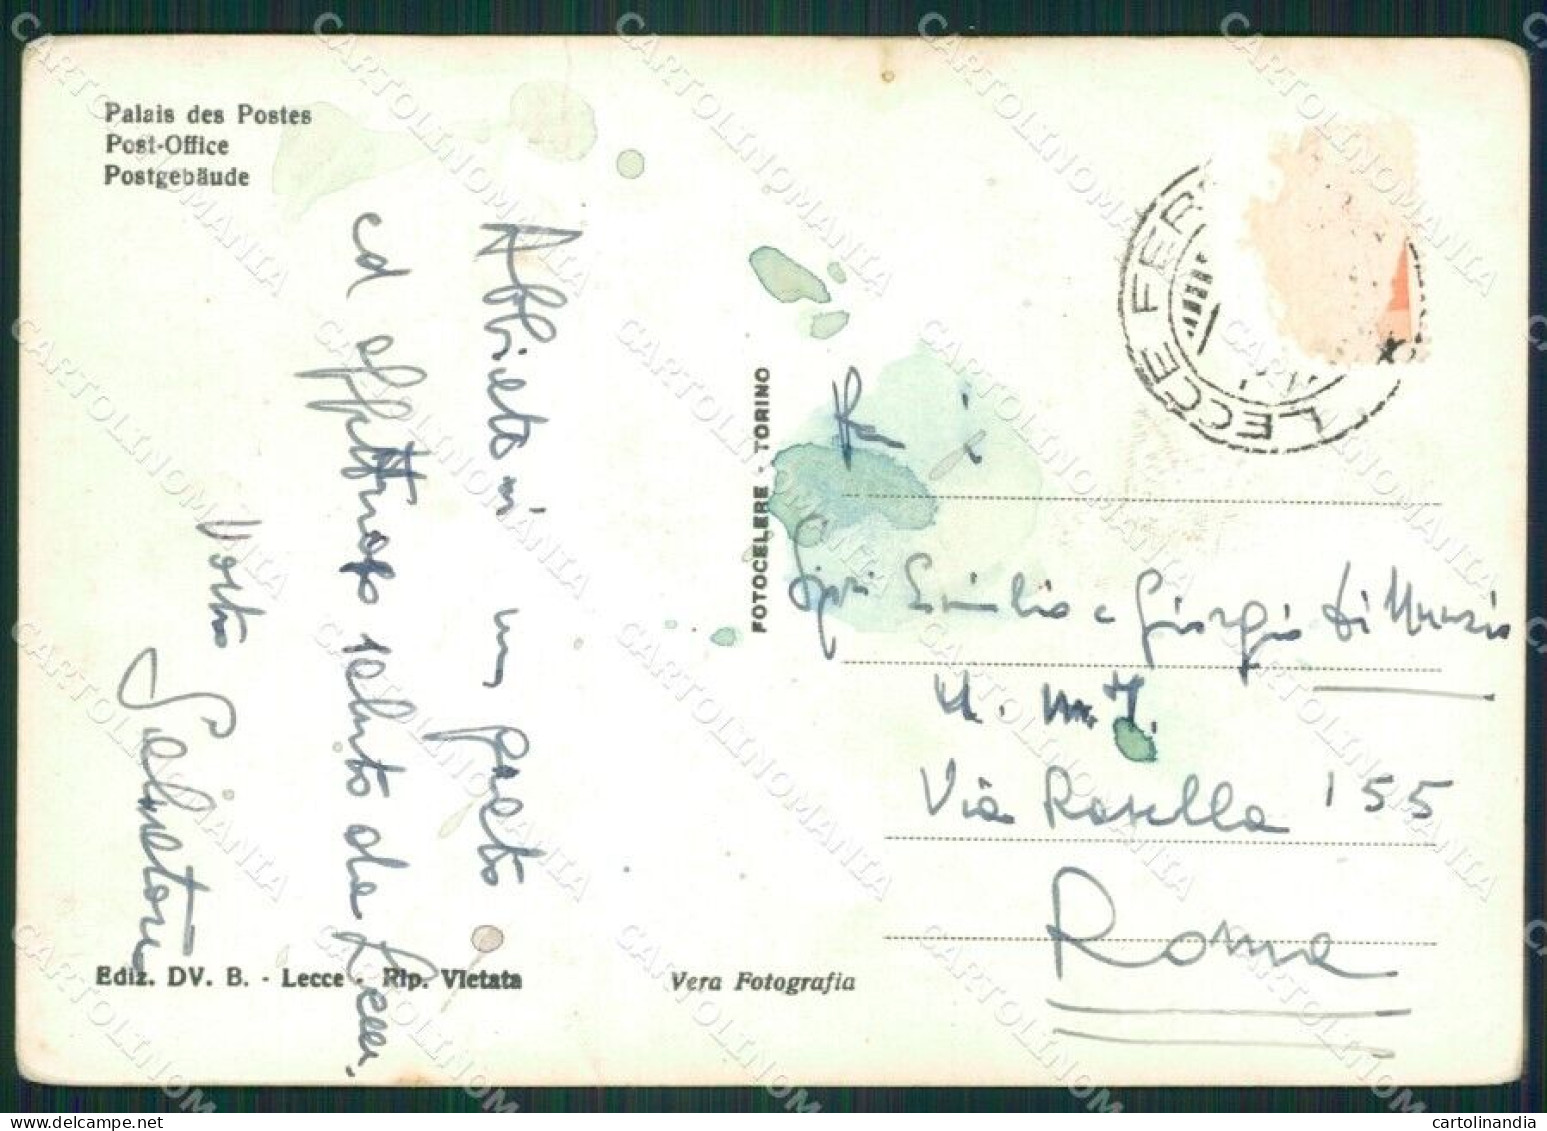 Palais des Postes
Post-Office
Postgebäude
Abbietevi un grosso
ed affettuoso saluto da Lecce.
Vostro
Salvatore
FOTOCELERE - TORINO
LECCE FERR
Emilio e Giorgio Di Nunzio
Via Rasella 155
Roma
Ediz. DV. B. - Lecce - Rip. Vietata
Vera Fotografia
CARTOLINOMANIA
cartolinandia